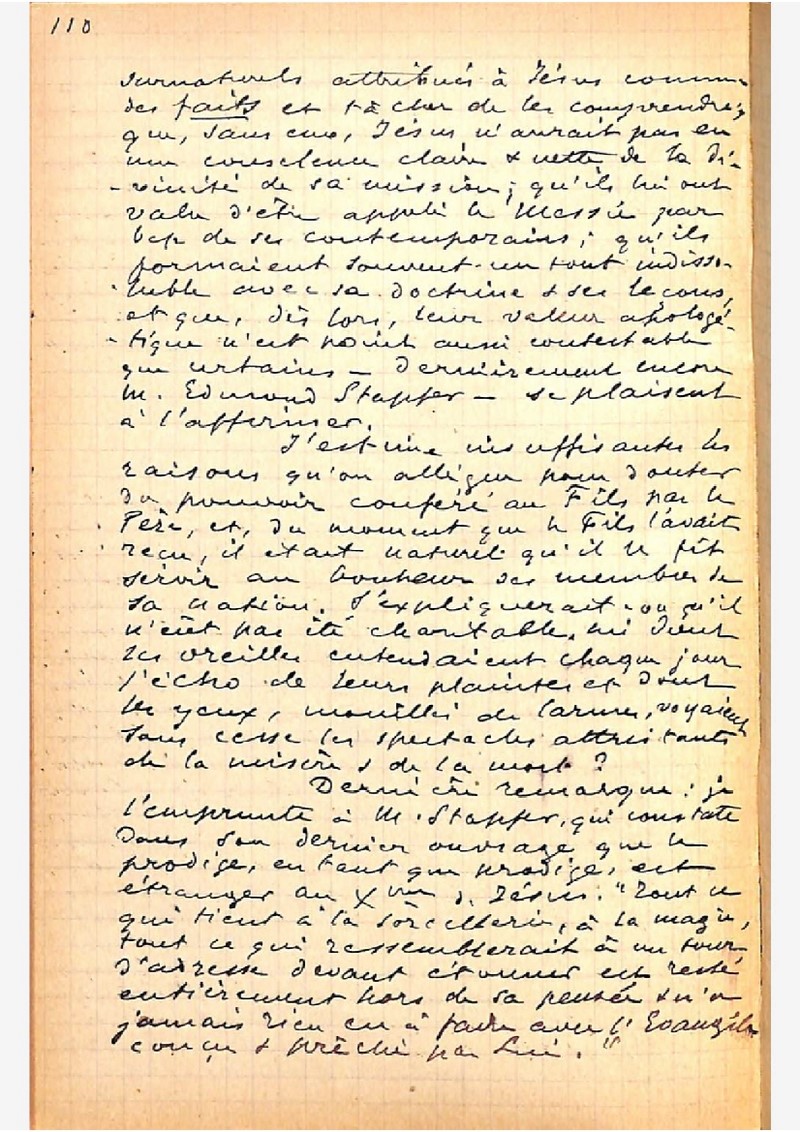 110
surnaturels attribués à Jésus comme
des faits et tâcher de les comprendre;
que, sans eux, Jésus n'aurait pas eu
une conscience claire & nette de la di-
-vinité de sa mission; qu'ils lui ont
valu d'être appelé le Messie par
bcp de ses contemporains; qu'ils
formaient souvent un tout indisso-
-luble avec sa doctrine & ses leçons,
et que, dès lors, leur valeur apologé-
-tique n'est point aussi contestable
que certains — dernièrement encore
M. Edmond Stapfer — se plaisent
à l'affirmer.
J'estime insuffisantes les
raisons qu'on allègue pour douter
du pouvoir conféré au Fils par le
Père, et, du moment que le Fils l'avait
reçu, il était naturel qu'il le fît
servir au bonheur des membres de
sa nation. S'expliquerait-on qu'il
n'eût pas été charitable, lui dont
les oreilles entendaient chaque jour
l'écho de leurs plaintes et dont
les yeux, mouillés de larmes, voyaient
sans cesse les spectacles attristants
de la misère & de la mort?
Dernière remarque: je
l'emprunte à M. Stapfer, qui constate
dans son dernier ouvrage que le
prodige, en tant que prodige, est
étranger au Xme d. Jésus. "Tout ce
qui tient à la sorcellerie, à la magie,
tout ce qui ressemblerait à un tour
d'adresse devant étonner est resté
entièrement hors de sa pensée & n'a
jamais rien eu à faire avec l'Evangile
conçu & prêché par Lui."